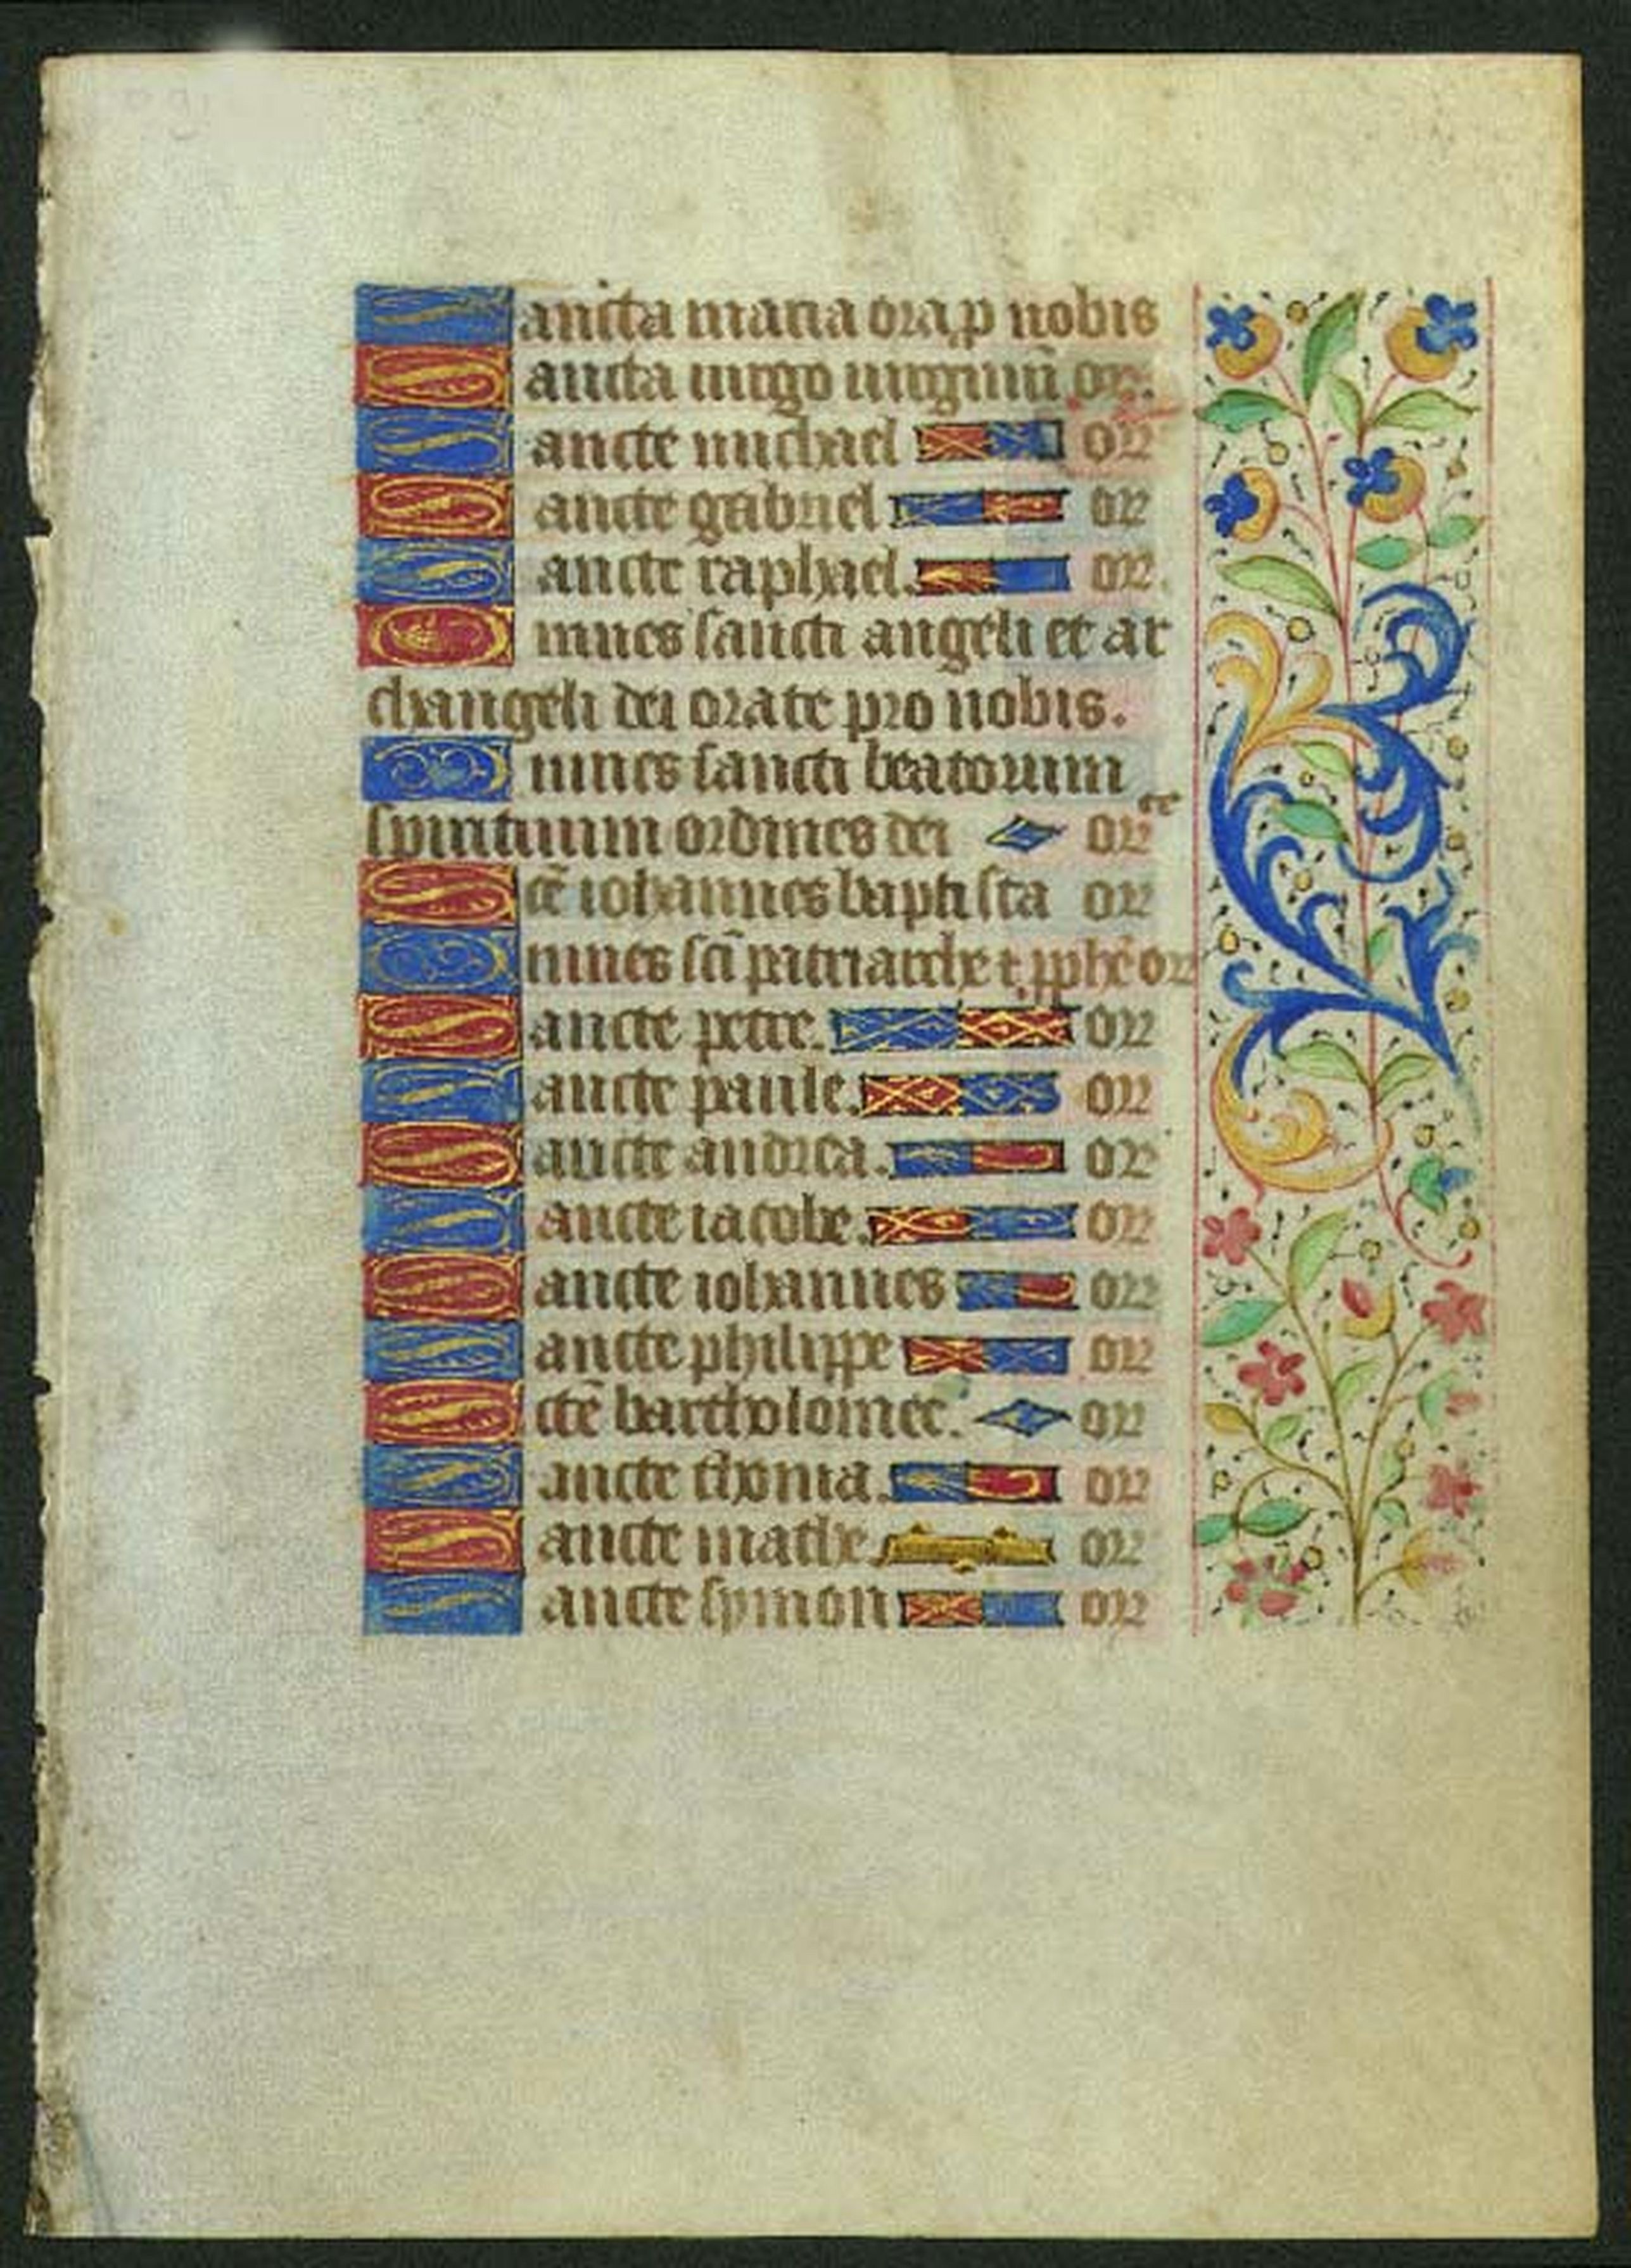 Sancta maria ora p nobis
Sancta uirgo uirginũ or.
Sancte michael or
Sancte gabriel or
Sancte raphael. or.
Omnes sancti angeli et ar
changeli dei orate pro nobis.
Omnes sancti beatorum
spirituum ordines dei orte
Scẽ iohannes baptista or
Omnes sci patriarche et pphe or
Sancte petre. or
Sancte paule. or
Sancte andrea. or
Sancte iacobe. or
Sancte iohannes or
Sancte philippe or
Sctẽ bartholomee. or
Sancte thoma. or
Sancte mathe or
Sancte symon or